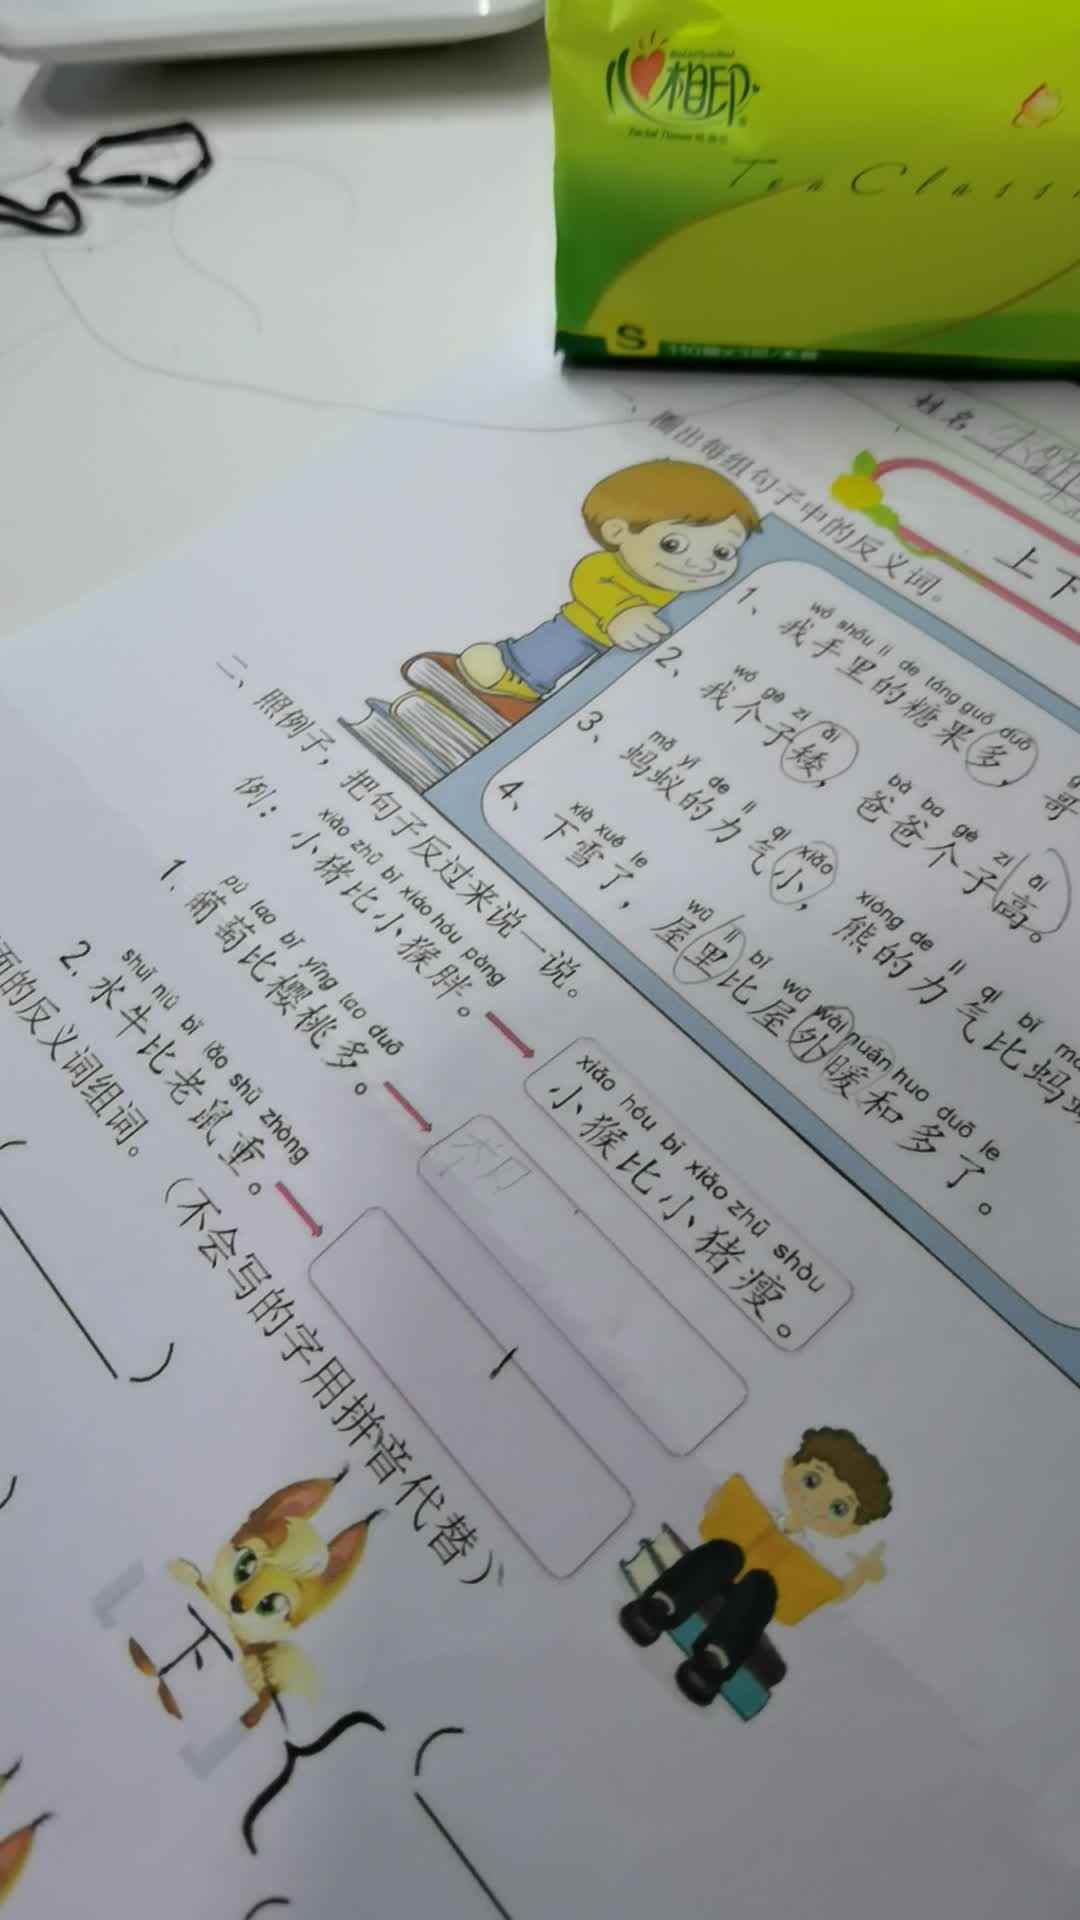 心相印
Tea Class
S
姓名
上下
一、圈出每组句子中的反义词。
wǒ shǒu lǐ de táng guǒ duō
1、我手里的糖果多，哥
wǒ gè zi ǎi bà ba gè zi ǎi
2、我个子矮，爸爸个子高。
mǎ yǐ de lì qi xiǎo xióng de lì qi bǐ mǎ
3、蚂蚁的力气小，熊的力气比蚂蚁
xià xuě le wū lǐ bǐ wū wài nuǎn huo duō le
4、下雪了，屋里比屋外暖和多了。
二、照例子，把句子反过来说一说。
xiǎo zhū bǐ xiǎo hóu pàng
例：小猪比小猴胖。
xiǎo hóu bǐ xiǎo zhū shòu
小猴比小猪瘦。
pú tao bǐ yīng tao duō
1. 葡萄比樱桃多。
shuǐ niú bǐ lǎo shǔ zhòng
2. 水牛比老鼠重。
面的反义词组词。（不会写的字用拼音代替）
下